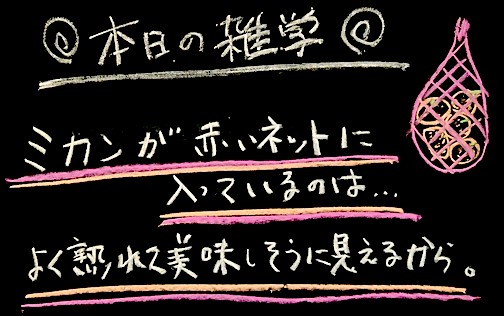 本日の雑学
ミカンが赤いネットに
入っているのは…
よく熟れて美味しそうに見えるから。